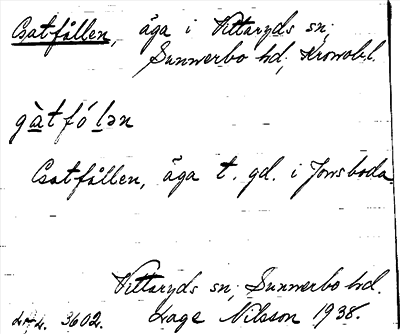 Gatfållen, äga i Vittaryds sn;
Sunnerbo hd; Kronob.l.
gàtfó lən
Gatfållen, äga t. gd. i Jonsboda
Vittaryds sn, Sunnerbo hd.
3602. Lage Nilsson 1938.